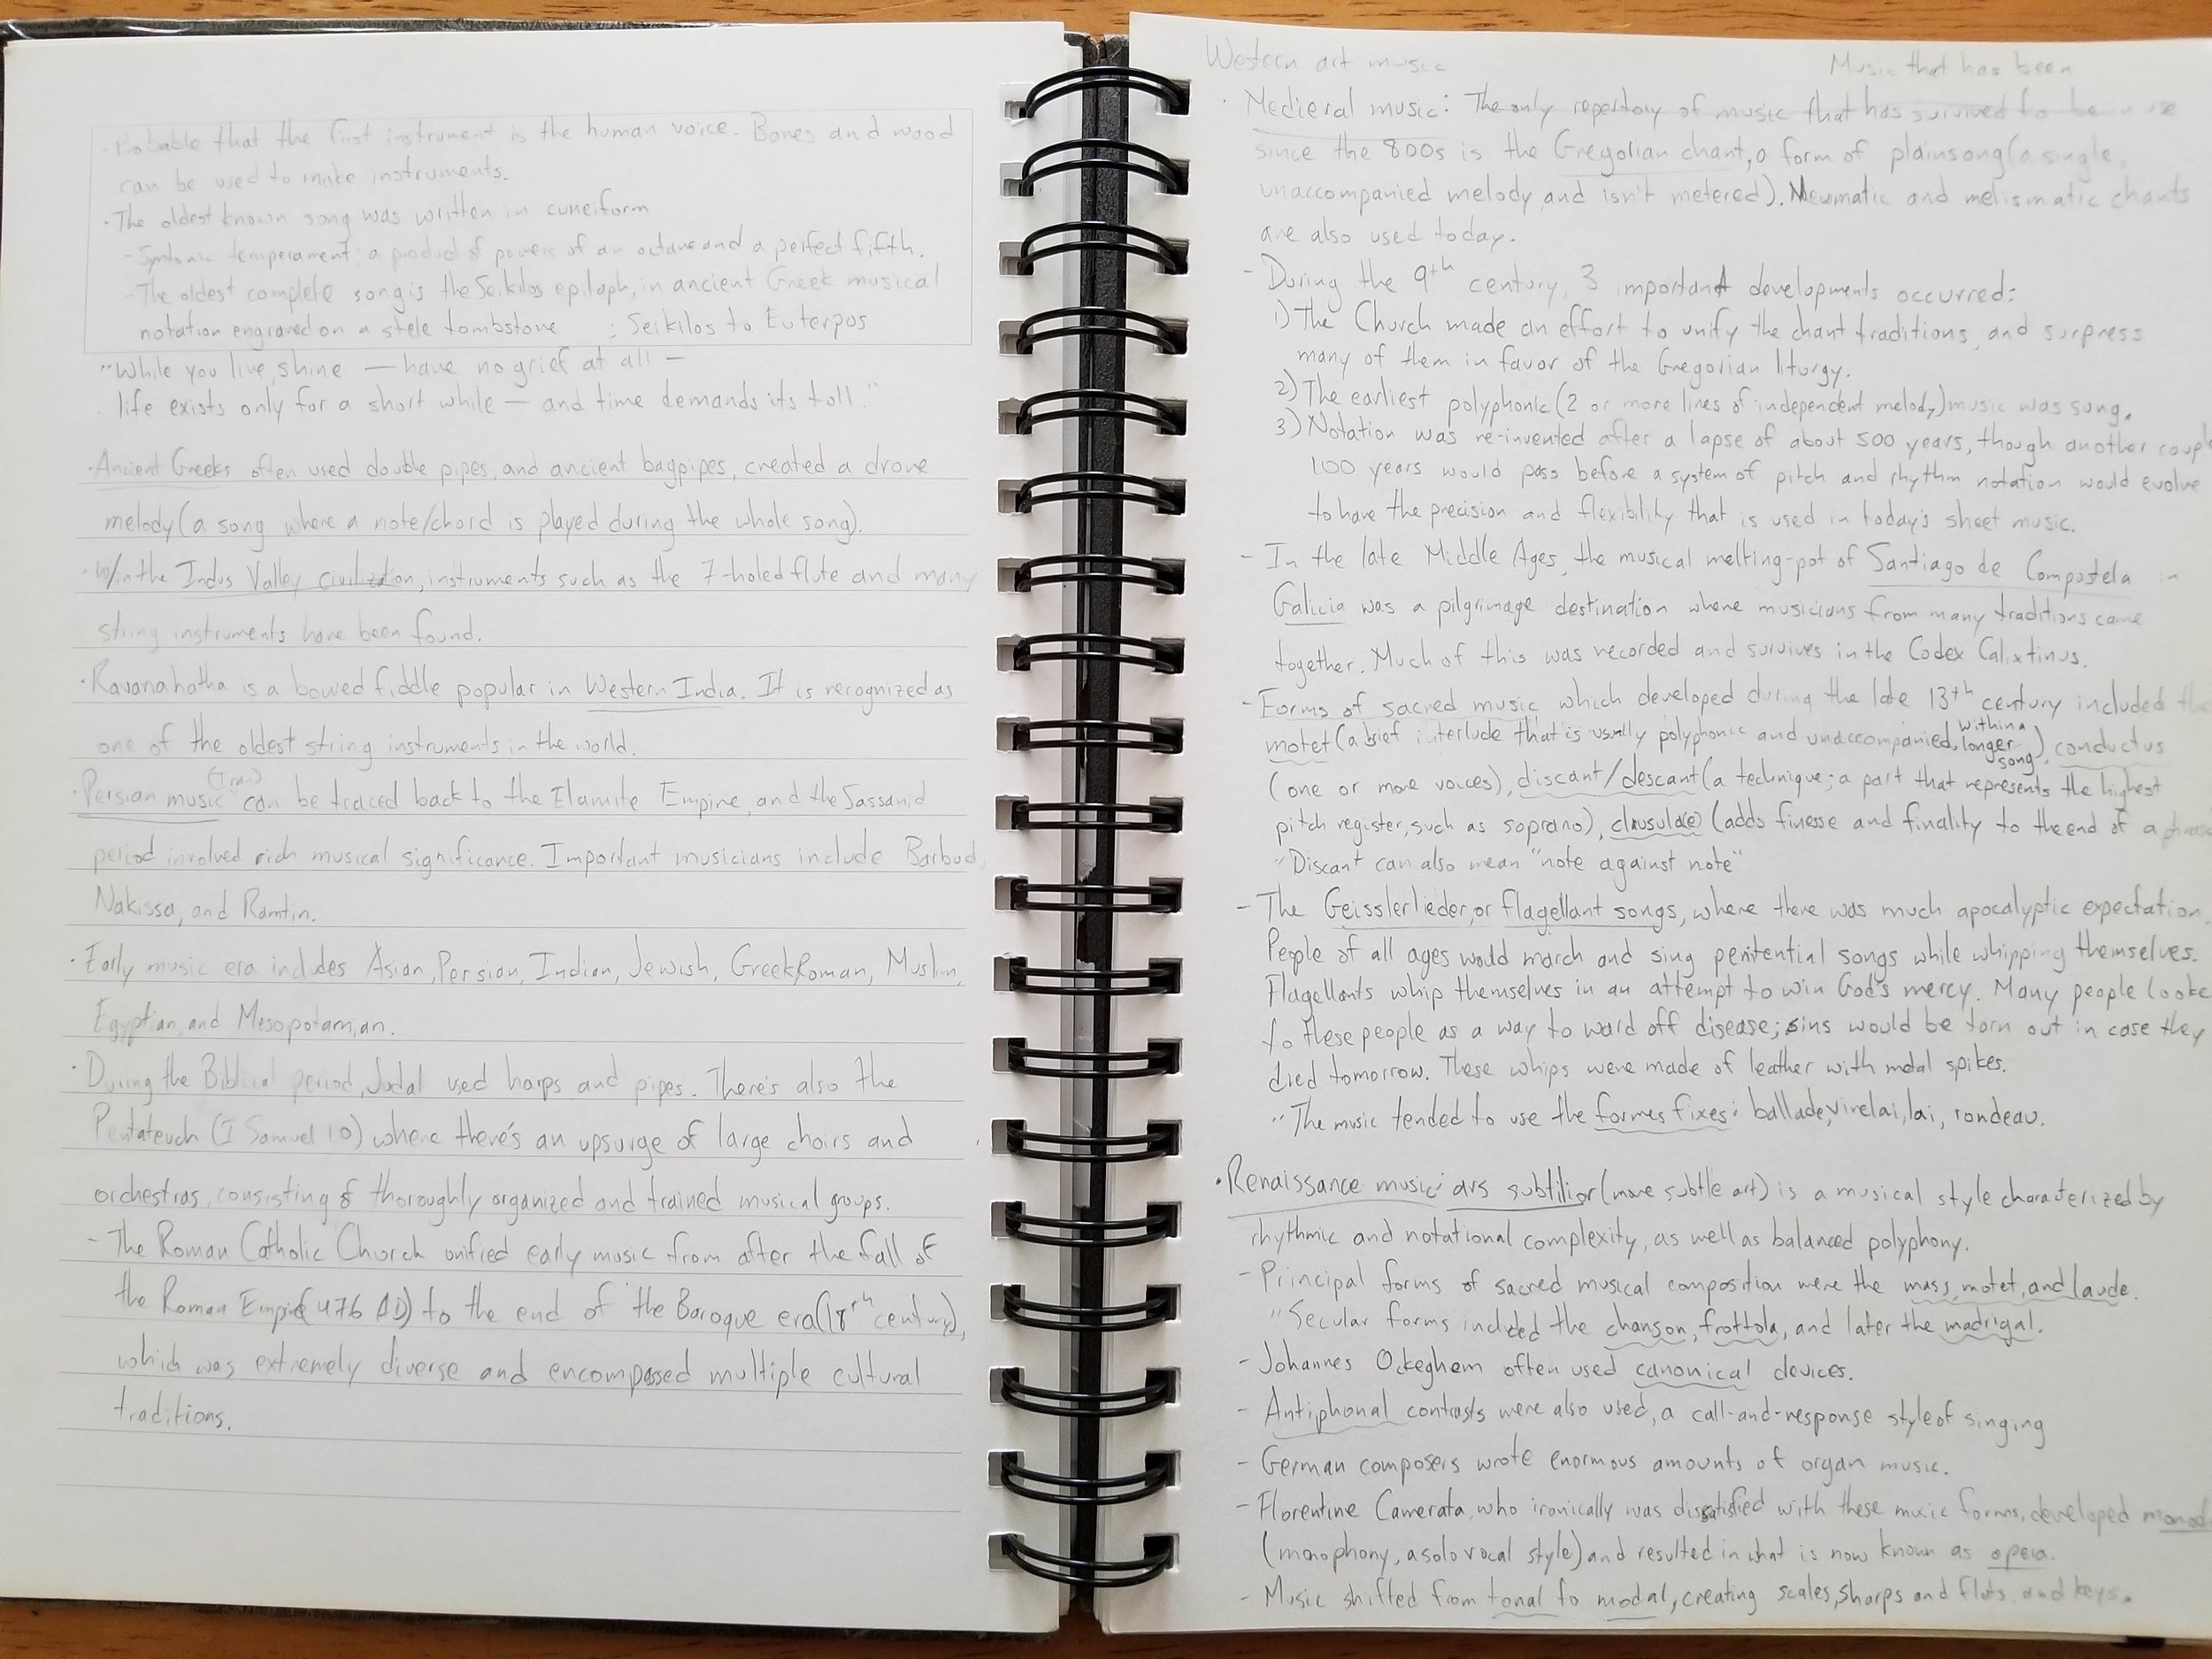 · Probable that the first instrument is the human voice. Bones and wood
can be used to make instruments.
· The oldest known song was written in cuneiform
- Syntonic temperament: a product of powers of an octave and a perfect fifth.
- The oldest complete song is the Seikilos epitaph, in ancient Greek musical
notation engraved on a stele tombstone : Seikilos to Euterpos
"While you live, shine — have no grief at all —
life exists only for a short while — and time demands its toll."
· Ancient Greeks often used double pipes, and ancient bagpipes, created a drone
melody (a song where a note/chord is played during the whole song).
· W/in the Indus Valley civilization, instruments such as the 7-holed flute and many
string instruments have been found.
· Ravanahatha is a bowed fiddle popular in Western India. It is recognized as
one of the oldest string instruments in the world.
· Persian music (Iran) can be traced back to the Elamite Empire, and the Sassanid
period involved rich musical significance. Important musicians include Barbud,
Nakissa, and Ramtin.
· Early music era includes Asian, Persian, Indian, Jewish, Greek, Roman, Muslim,
Egyptian, and Mesopotamian.
· During the Biblical period, Judal used harps and pipes. There's also the
Pentateuch (I Samuel 10) where there's an upsurge of large choirs and
orchestras, consisting of thoroughly organized and trained musical groups.
- The Roman Catholic Church unified early music from after the fall of
the Roman Empire (476 AD) to the end of the Baroque era (18th century),
which was extremely diverse and encompassed multiple cultural
traditions.
Western art music Music that has been
· Medieval music: The only repertory of music that has survived to be in use
since the 800s is the Gregorian chant, a form of plainsong (a single,
unaccompanied melody, and isn't metered). Neumatic and melismatic chants
are also used today.
- During the 9th century, 3 important developments occurred:
1) The Church made an effort to unify the chant traditions, and surpress
many of them in favor of the Gregorian liturgy.
2) The earliest polyphonic (2 or more lines of independent melody) music was sung.
3) Notation was re-invented after a lapse of about 500 years, though another coupl
100 years would pass before a system of pitch and rhythm notation would evolve
to have the precision and flexibility that is used in today's sheet music.
- In the late Middle Ages, the musical melting-pot of Santiago de Compostela in
Galicia was a pilgrimage destination where musicians from many traditions came
together. Much of this was recorded and survives in the Codex Calixtinus.
- Forms of sacred music which developed during the late 13th century included the
motet (a brief interlude that is usually polyphonic and unaccompanied, within a longer song), conductus
(one or more voices), discant/descant (a technique; a part that represents the highest
pitch register, such as soprano), clausula(e) (adds finesse and finality to the end of a phrase
" Discant can also mean "note against note"
- The Geisslerlieder, or flagellant songs, where there was much apocalyptic expectation.
People of all ages would march and sing penitential songs while whipping themselves.
Flagellants whip themselves in an attempt to win God's mercy. Many people looke
to these people as a way to ward off disease; sins would be torn out in case they
died tomorrow. These whips were made of leather with metal spikes.
" The music tended to use the formes fixes: ballade, virelai, lai, rondeau.
· Renaissance music: ars subtilior (more subtle art) is a musical style characterized by
rhythmic and notational complexity, as well as balanced polyphony.
- Principal forms of sacred musical composition were the mass, motet, and laude.
" Secular forms included the chanson, frottola, and later the madrigal.
- Johannes Ockeghem often used canonical devices.
- Antiphonal contrasts were also used, a call-and-response style of singing
- German composers wrote enormous amounts of organ music.
- Florentine Camerata, who ironically was dissatisfied with these music forms, developed monod
(monophony, a solo vocal style) and resulted in what is now known as opera.
- Music shifted from tonal to modal, creating scales, sharps and flats, and keys.